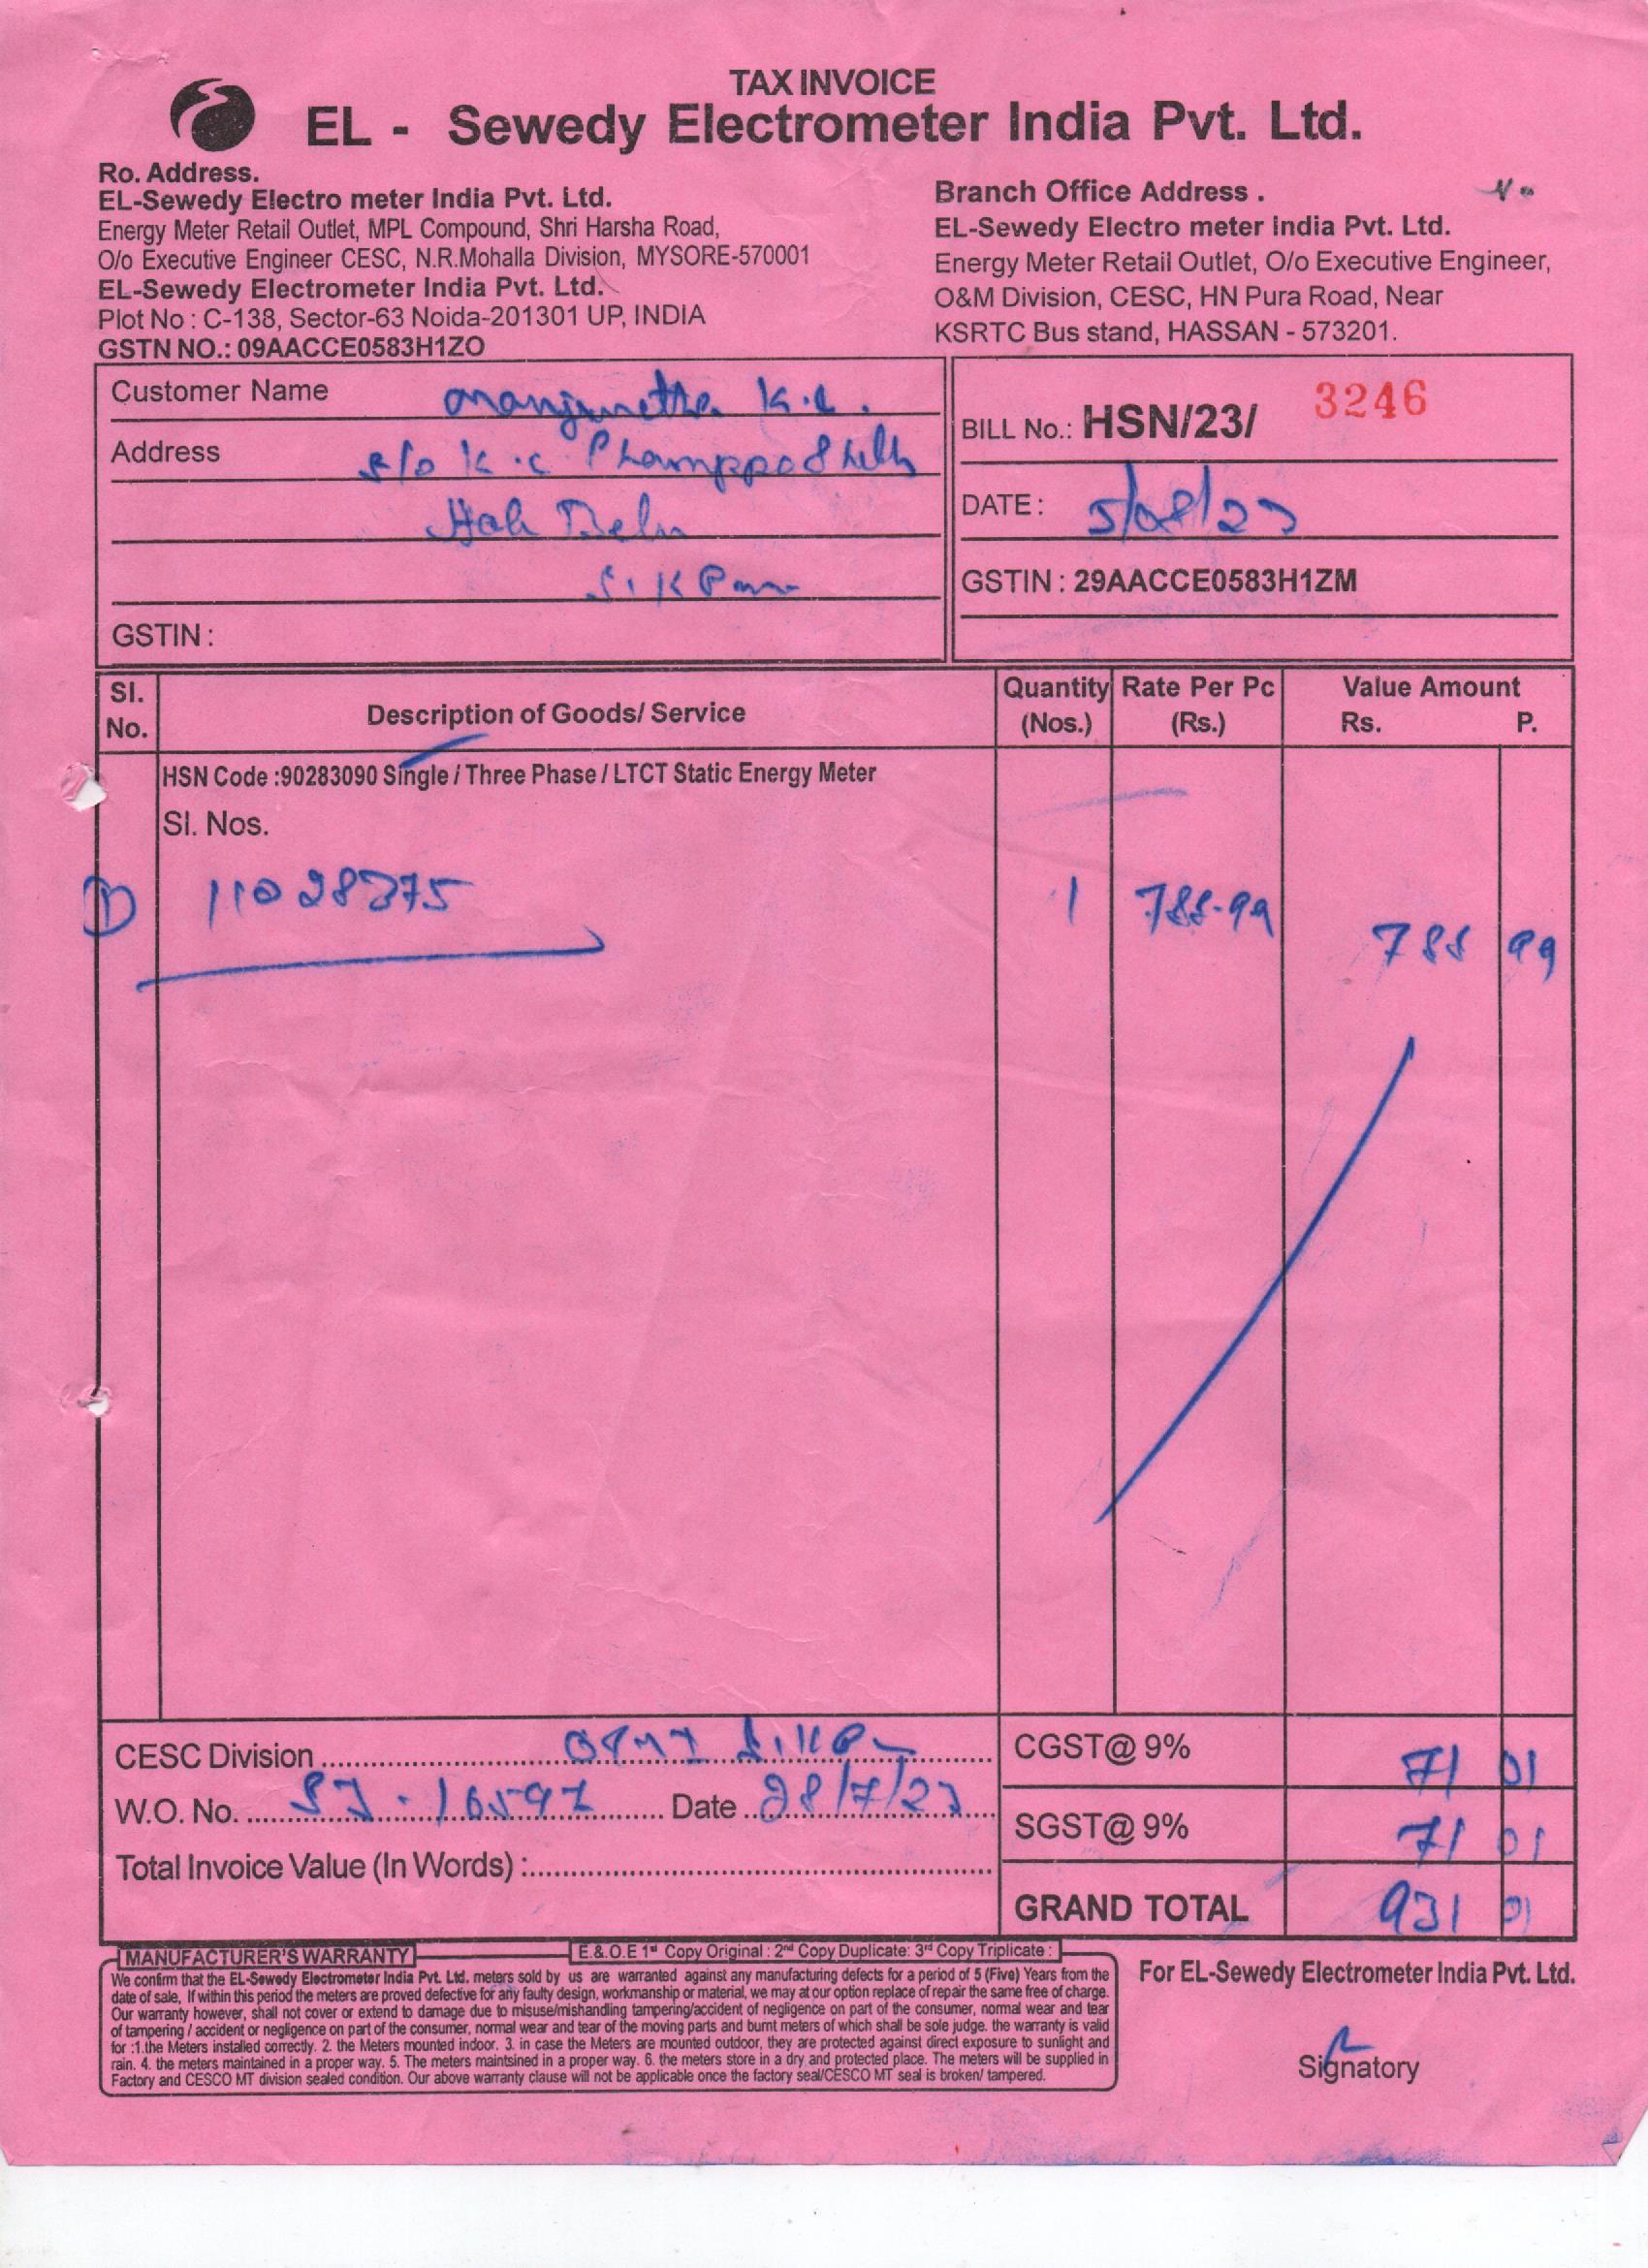 TAX INVOICE
EL - Sewedy Electrometer India Pvt. Ltd.
Ro. Address.
EL-Sewedy Electro meter India Pvt. Ltd.
Energy Meter Retail Outlet, MPL Compound, Shri Harsha Road,
O/o Executive Engineer CESC, N.R.Mohalla Division, MYSORE-570001
EL-Sewedy Electrometer India Pvt. Ltd.
Plot No : C-138, Sector-63 Noida-201301 UP, INDIA
GSTN NO.: 09AACCE0583H1ZO
Branch Office Address .
EL-Sewedy Electro meter india Pvt. Ltd.
Energy Meter Retail Outlet, O/o Executive Engineer,
O&M Division, CESC, HN Pura Road, Near
KSRTC Bus stand, HASSAN - 573201.
Customer Name manjunatha K.C.
Address S/o K.C.
GSTIN :
BILL No.: HSN/23/ 3246
DATE : 5/08/23
GSTIN : 29AACCE0583H1ZM
Sl. No. Description of Goods/ Service Quantity (Nos.) Rate Per Pc (Rs.) Value Amount Rs. P.
HSN Code :90283090 Single / Three Phase / LTCT Static Energy Meter
Sl. Nos.
1) 11028375 1 788.99 788 99
CESC Division
W.O. No. Date 28/7/23
Total Invoice Value (In Words) :
CGST@ 9% 71 01
SGST@ 9% 71 01
GRAND TOTAL 931 01
MANUFACTURER'S WARRANTY E.& .O.E 1st Copy Original : 2nd Copy Duplicate: 3rd Copy Triplicate :
We confirm that the EL-Sewedy Electrometer India Pvt. Ltd. meters sold by us are warranted against any manufacturing defects for a period of 5 (Five) Years from the
date of sale, If within this period the meters are proved defective for any faulty design, workmanship or material, we may at our option replace of repair the same free of charge.
Our warranty however, shall not cover or extend to damage due to misuse/mishandling tampering/accident of negligence on part of the consumer, normal wear and tear
of tampering / accident or negligence on part of the consumer, normal wear and tear of the moving parts and burnt meters of which shall be sole judge. the warranty is valid
for :1.the Meters installed correctly. 2. the Meters mounted indoor. 3. in case the Meters are mounted outdoor, they are protected against direct exposure to sunlight and
rain. 4. the meters maintained in a proper way. 5. The meters maintsined in a proper way. 6. the meters store in a dry and protected place. The meters will be supplied in
Factory and CESCO MT division sealed condition. Our above warranty clause will not be applicable once the factory seal/CESCO MT seal is broken/ tampered.
For EL-Sewedy Electrometer India Pvt. Ltd.
Signatory